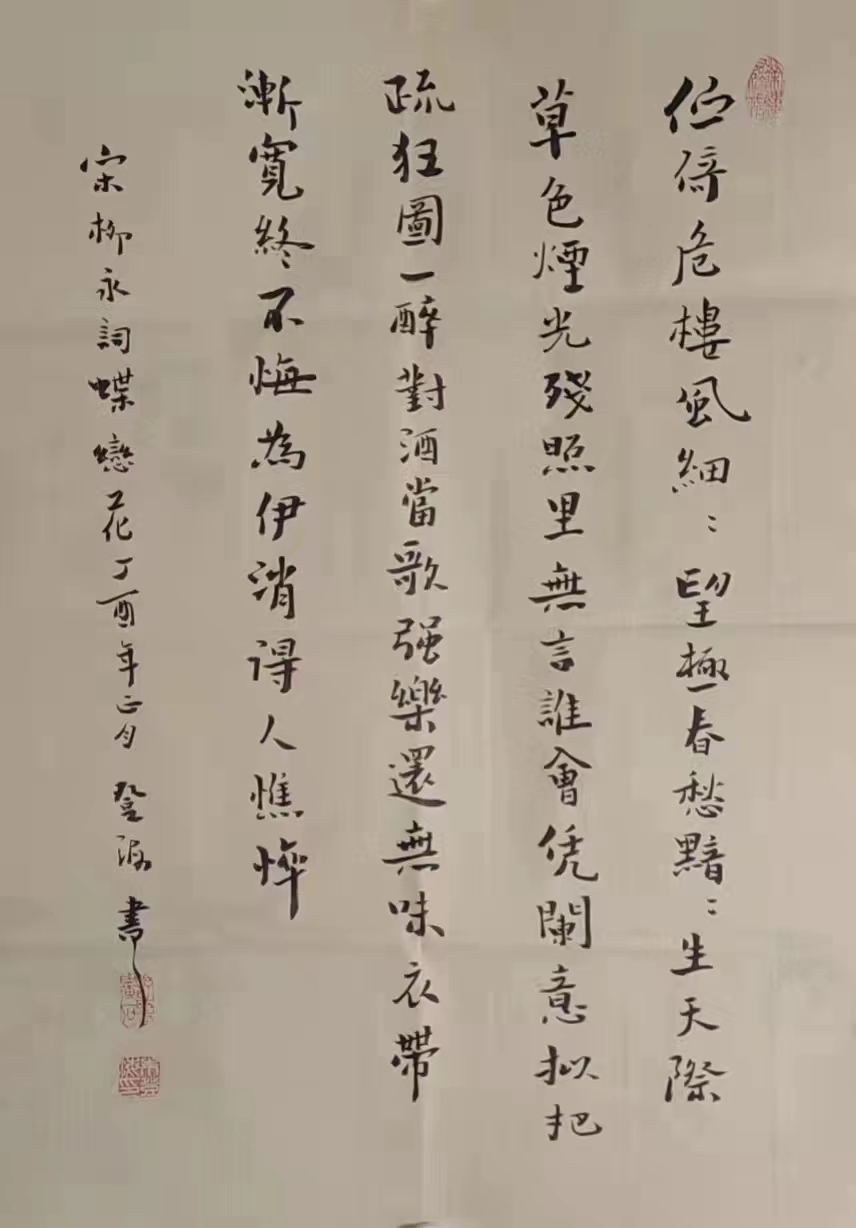 伫倚危樓風細：望極春愁黯：生天際
草色煙光殘照里無言誰會凭闌意拟把
疏狂圖一醉對酒當歌强樂還無味衣帶
漸寬終不悔為伊消得人憔悴
宋柳永詞蝶戀花丁酉年正月 書